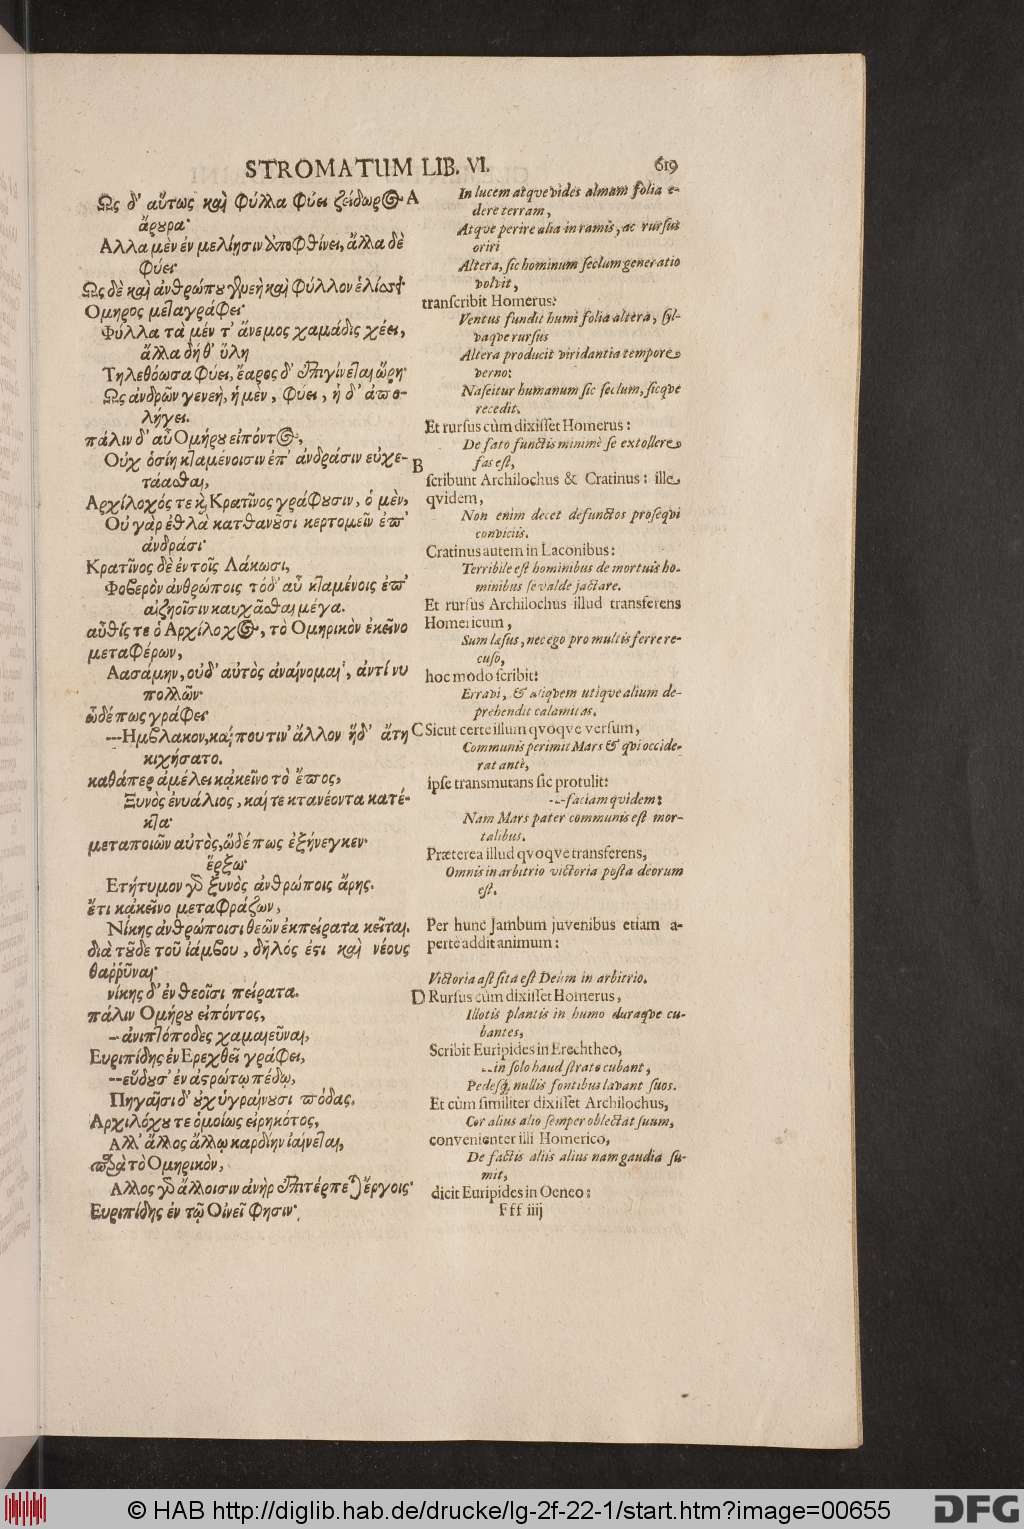 STROMATUM LIB. VI. 619
Ως δ' αὔτως καὶ φύλλα φύει ζείδωρος A
ἄρουρα·
Αλλα μὲν ἐν μελίῃσιν ἀποφθίνει, ἄλλα δὲ
φύει·
Ως δὲ καὶ ἀνθρώπου γενεὴ καὶ φύλλον ἑλίσσει·
Ομηρος μεταγράφει·
Φύλλα τὰ μέν τ' ἄνεμος χαμάδις χέει,
ἄλλα δή θ' ὕλη
Τηλεθόωσα φύει, ἔαρος δ' ἐπιγίνεται ὥρη·
Ως ἀνδρῶν γενεὴ, ἡ μὲν, φύει, ἡ δ' ἀπο-
λήγει.
πάλιν δ' αὖ Ομήρου εἰπόντος,
Οὐχ ὁσίη κταμένοισιν ἐπ' ἀνδράσιν εὐχε-
τάασθαι,
Αρχίλοχός τε καὶ Κρατῖνος γράφουσιν, ὁ μὲν,
Οὐ γὰρ ἐθλὰ κατθανοῦσι κερτομεῖν ἐπ'
ἀνδράσι·
Κρατῖνος δὲ ἐν τοῖς Λάκωσι,
Φοβερὸν ἀνθρώποις τόδ' αὖ κταμένοις ἐπ'
αἰζηοῖσιν καυχᾶσθαι μέγα.
αὖθίς τε ὁ Αρχίλοχος, τὸ Ομηρικὸν ἐκεῖνο
μεταφέρων,
Αασάμην, οὐδ' αὐτὸς ἀναίνομαι, ἀντί νυ
πολλῶν·
ὧδέ πως γράφει·
---Ημβλακον, καί που τιν' ἄλλον ἥδ' ἄτη
κιχήσατο.
καθάπερ ἀμέλει κἀκεῖνο τὸ ἔπος,
Ξυνὸς ἐνυάλιος, καί τε κτανέοντα κατέ-
κτα·
μεταποιῶν αὐτὸς, ὧδέ πως ἐξήνεγκεν·
ἔρξω·
Ετήτυμον γὰρ ξυνὸς ἀνθρώποις ἄρης.
ἔτι κἀκεῖνο μεταφράζων,
Νίκης ἀνθρώποισι θεῶν ἐκ πείρατα κεῖται.
διὰ τοῦδε τοῦ ἰάμβου, δῆλός ἐστι καὶ νέους
θαῤῥῦναι·
νίκης δ' ἐν θεοῖσι πείρατα.
πάλιν Ομήρου εἰπόντος,
--ἀνιπτόποδες χαμαιεῦναι,
Ευριπίδης ἐν Ερεχθεῖ γράφει,
--εὕδουσ' ἐν ἀστρώτῳ πέδῳ,
Πηγαῖσι δ' οὐχ ὑγραίνουσι πόδας.
Αρχιλόχου τε ὁμοίως εἰρηκότος,
Αλλ' ἄλλος ἄλλῳ καρδίην ἰαίνεται,
παρὰ τὸ Ομηρικὸν,
Αλλος γὰρ ἄλλοισιν ἀνὴρ ἐπιτέρπεται ἔργοις·
Ευριπίδης ἐν τῷ Οἰνεῖ φησιν·
In lucem atqve vides almam folia e-
dere terram,
Atqve perire alia in ramis, ac rursus
oriri
Altera, sic hominum seclum generatio
volvit,
transcribit Homerus:
Ventus fundit humi folia altera, syl-
vaqve rursus
Altera producit viridantia tempore
verno:
Nascitur humanum sic seclum, sicqve
recedit.
Et rursus cùm dixisset Homerus:
De fato functis minimè se extollere
B fas est,
scribunt Archilochus & Cratinus: ille
qvidem,
Non enim decet defunctos proseqvi
conviciis.
Cratinus autem in Laconibus:
Terribile est hominibus de mortuis ho-
minibus se valde jactare.
Et rursus Archilochus illud transferens
Homericum,
Sum læsus, nec ego pro multis ferre re-
cuso,
hoc modo scribit:
Erravi, & aliqvem utiqve alium de-
prehendit calamitas.
C Sicut certe illum qvoqve versum,
Communis perimit Mars & qvi occide-
rat antè,
ipse transmutans sic protulit:
--faciam qvidem:
Nam Mars pater communis est mor-
talibus.
Præterea illud qvoqve transferens,
Omnis in arbitrio victoria posta deorum
est.
Per hunc Jambum juvenibus etiam a-
perte addit animum:
Victoria ast sita est Deûm in arbitrio.
D Rursus cùm dixisset Homerus,
Illotis plantis in humo duraqve cu-
bantes,
Scribit Euripides in Erechtheo,
--in solo haud strato cubant,
Pedesq; nullis fontibus lavant suos.
Et cùm similiter dixisset Archilochus,
Cor alius alio semper oblectat suum,
convenienter illi Homerico,
De factis aliis alius nam gaudia su-
mit,
dicit Euripides in Oeneo:
Fff iiij
© HAB http://diglib.hab.de/drucke/lg-2f-22-1/start.htm?image=00655
DFG